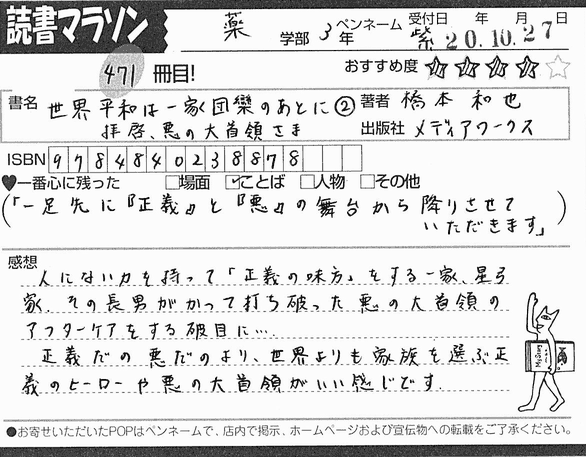 読書マラソン
薬 学部 3年 ペンネーム 紫 受付日 年 月 日 20.10.27
471 冊目! おすすめ度 ★★★★☆
書名 世界平和は一家団欒のあとに② 著者 橋本和也
拝啓、悪の大首領さま 出版社 メディアワークス
ISBN 9784840238878
♥一番心に残った □場面 ☑ことば □人物 □その他
(「一足先に『正義』と『悪』の舞台から降りさせて
いただきます」)
感想
人にない力を持って「正義の味方」をする一家、星弓
家。その長男がかつて打ち破った悪の大首領の
アフターケアをする破目に…。
正義だの悪だのより、世界よりも家族を選ぶ正
義のヒーローや悪の大首領がいい感じです。
●お寄せいただいたPOPはペンネームで、店内で掲示、ホームページおよび宣伝物への転載をご了承ください。